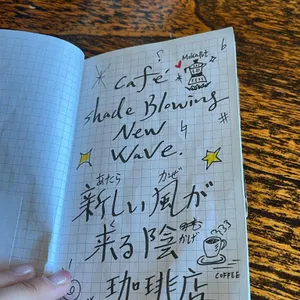 MokaPot
Café
shade Blowing
New
Wave.
あたら かぜ
新しい風が
来る陰
かげ
COFFEE
珈琲店